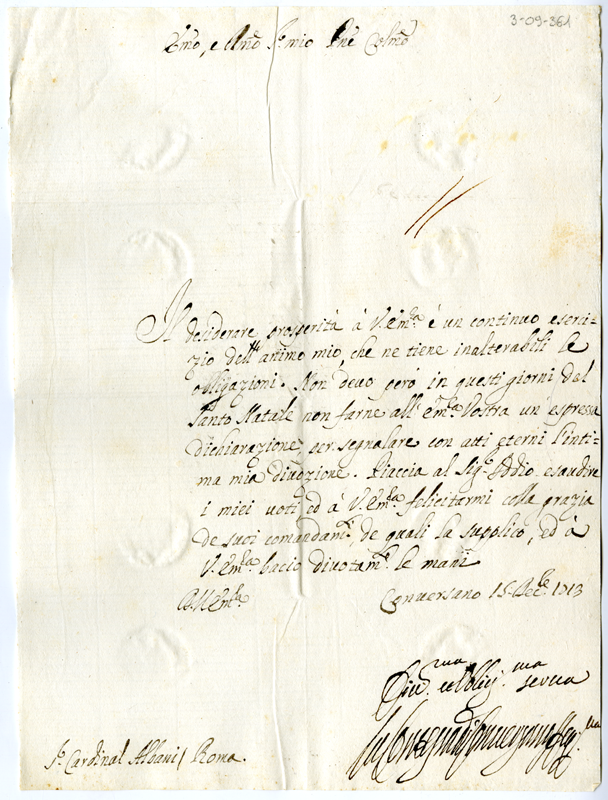 3-09-361
Emõ, e Rmõ Sr. mio Pñe Colmõ
Il desiderare prosperità à V. Emza. è un continuo eserci=
zio dell'animo mio, che ne tiene inalterabili le
obligazioni. Non devo però in questi giorni del
Santo Natale non farne all'Emza. Vostra un espressa
dichiarazione, per segnalare con atti eterni l'inti=
ma mia divozione. Piaccia al Sigr. Iddio esaudire
i miei voti, ed à V. Emza. felicitarmi colla grazia
de suoi comandamti. de quali la supplico, ed à
V. Emza. bacio divotamte. le mani
D. V. Emza. Conversano 15. Dece. 1713
Divma. et Obligma. serva
La Contessa di Conversano
Sr. Cardinal Albani / Roma.